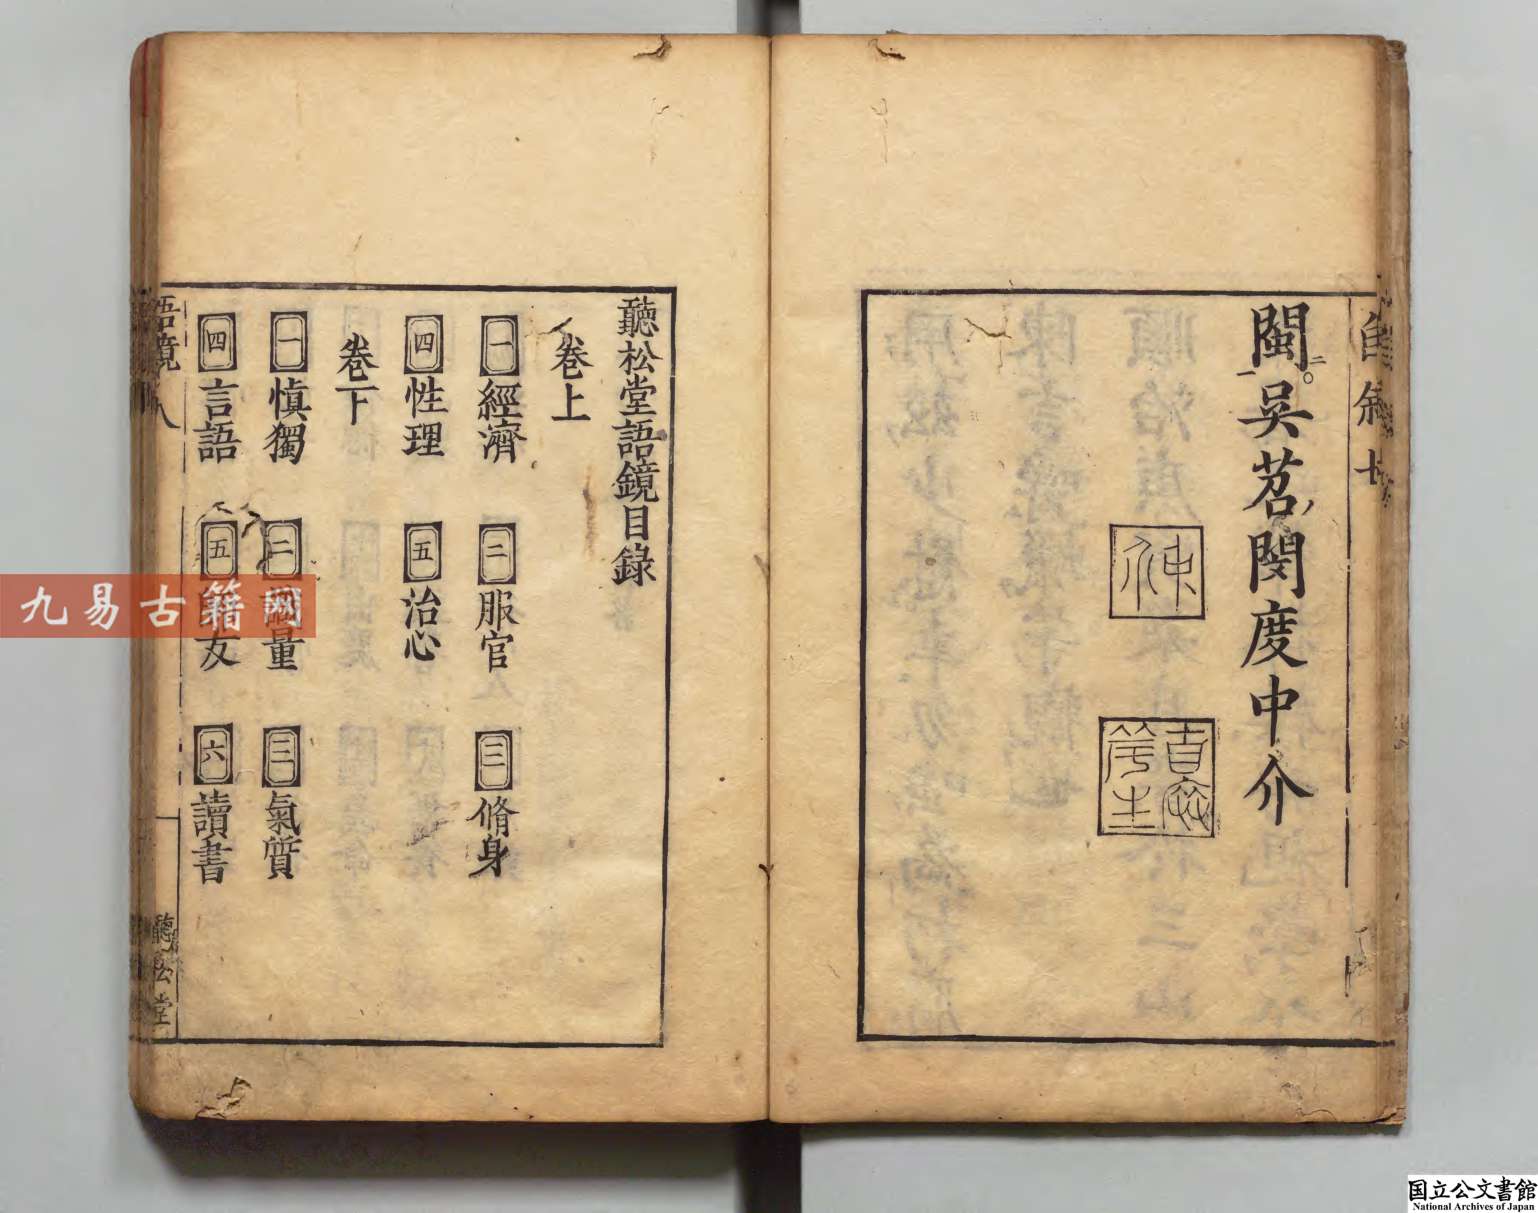 自叙 七
閩吳苕閔度中介
聽松堂語鏡目錄
卷上
一 經濟 二 服官 三 脩身
四 性理 五 治心
卷下
一 慎獨 二 量 三 氣質
四 言語 五 友 六 讀書
語鏡 八 聽松堂
九易古籍网
国立公文書館
National Archives of Japan